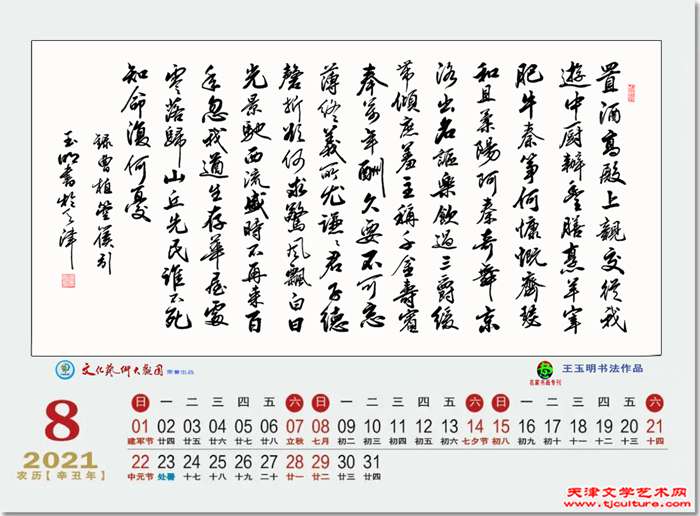 置酒高殿上親交從我
遊中厨辦豐膳烹羊宰
肥牛秦筝何慷慨齊瑟
和且柔陽阿奏奇舞京
洛出名謳樂飲過三爵緩
帶傾庶羞主稱千金壽賓
奉萬年酬久要不可忘
薄終義所尤謙〻君子德
磬折欲何求驚風飄白日
光景馳西流盛時不再來百
年忽我遒生存華屋處
零落歸山丘先民誰不死
知命復何憂
録曹植箜篌引
玉明書於天津
文化艺术大观园 荣誉出品
名家书画专刊
王玉明书法作品
8
2021
农历【辛丑年】
日 一 二 三 四 五 六 日 一 二 三 四 五 六 日 一 二 三 四 五 六
01 02 03 04 05 06 07 08 09 10 11 12 13 14 15 16 17 18 19 20 21
建军节 廿四 廿五 廿六 廿七 廿八 立秋 七月 初二 初三 初四 初五 初六 七夕节 初八 初九 初十 十一 十二 十三 十四
22 23 24 25 26 27 28 29 30 31
中元节 处暑 十七 十八 十九 二十 廿一 廿二 廿三 廿四
天津文学艺术网
www.tjculture.com